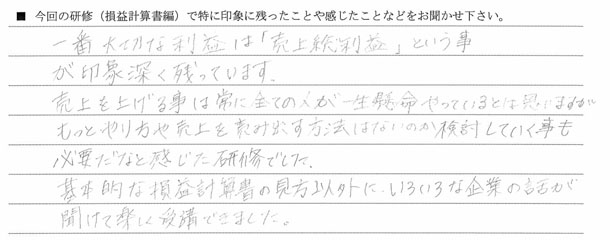 ■ 今回の研修（損益計算書編）で特に印象に残ったことや感じたことなどをお聞かせ下さい。
一番大切な利益は「売上総利益」という事
が印象深く残っています。
売上を上げる事は常に全ての人が一生懸命やっているとは思いますが
もっとやり方や売上を産み出す方法はないのか検討していく事も
必要だなと感じた研修でした。
基本的な損益計算書の見方以外に、いろいろな企業の話が
聞けて楽しく受講できました。